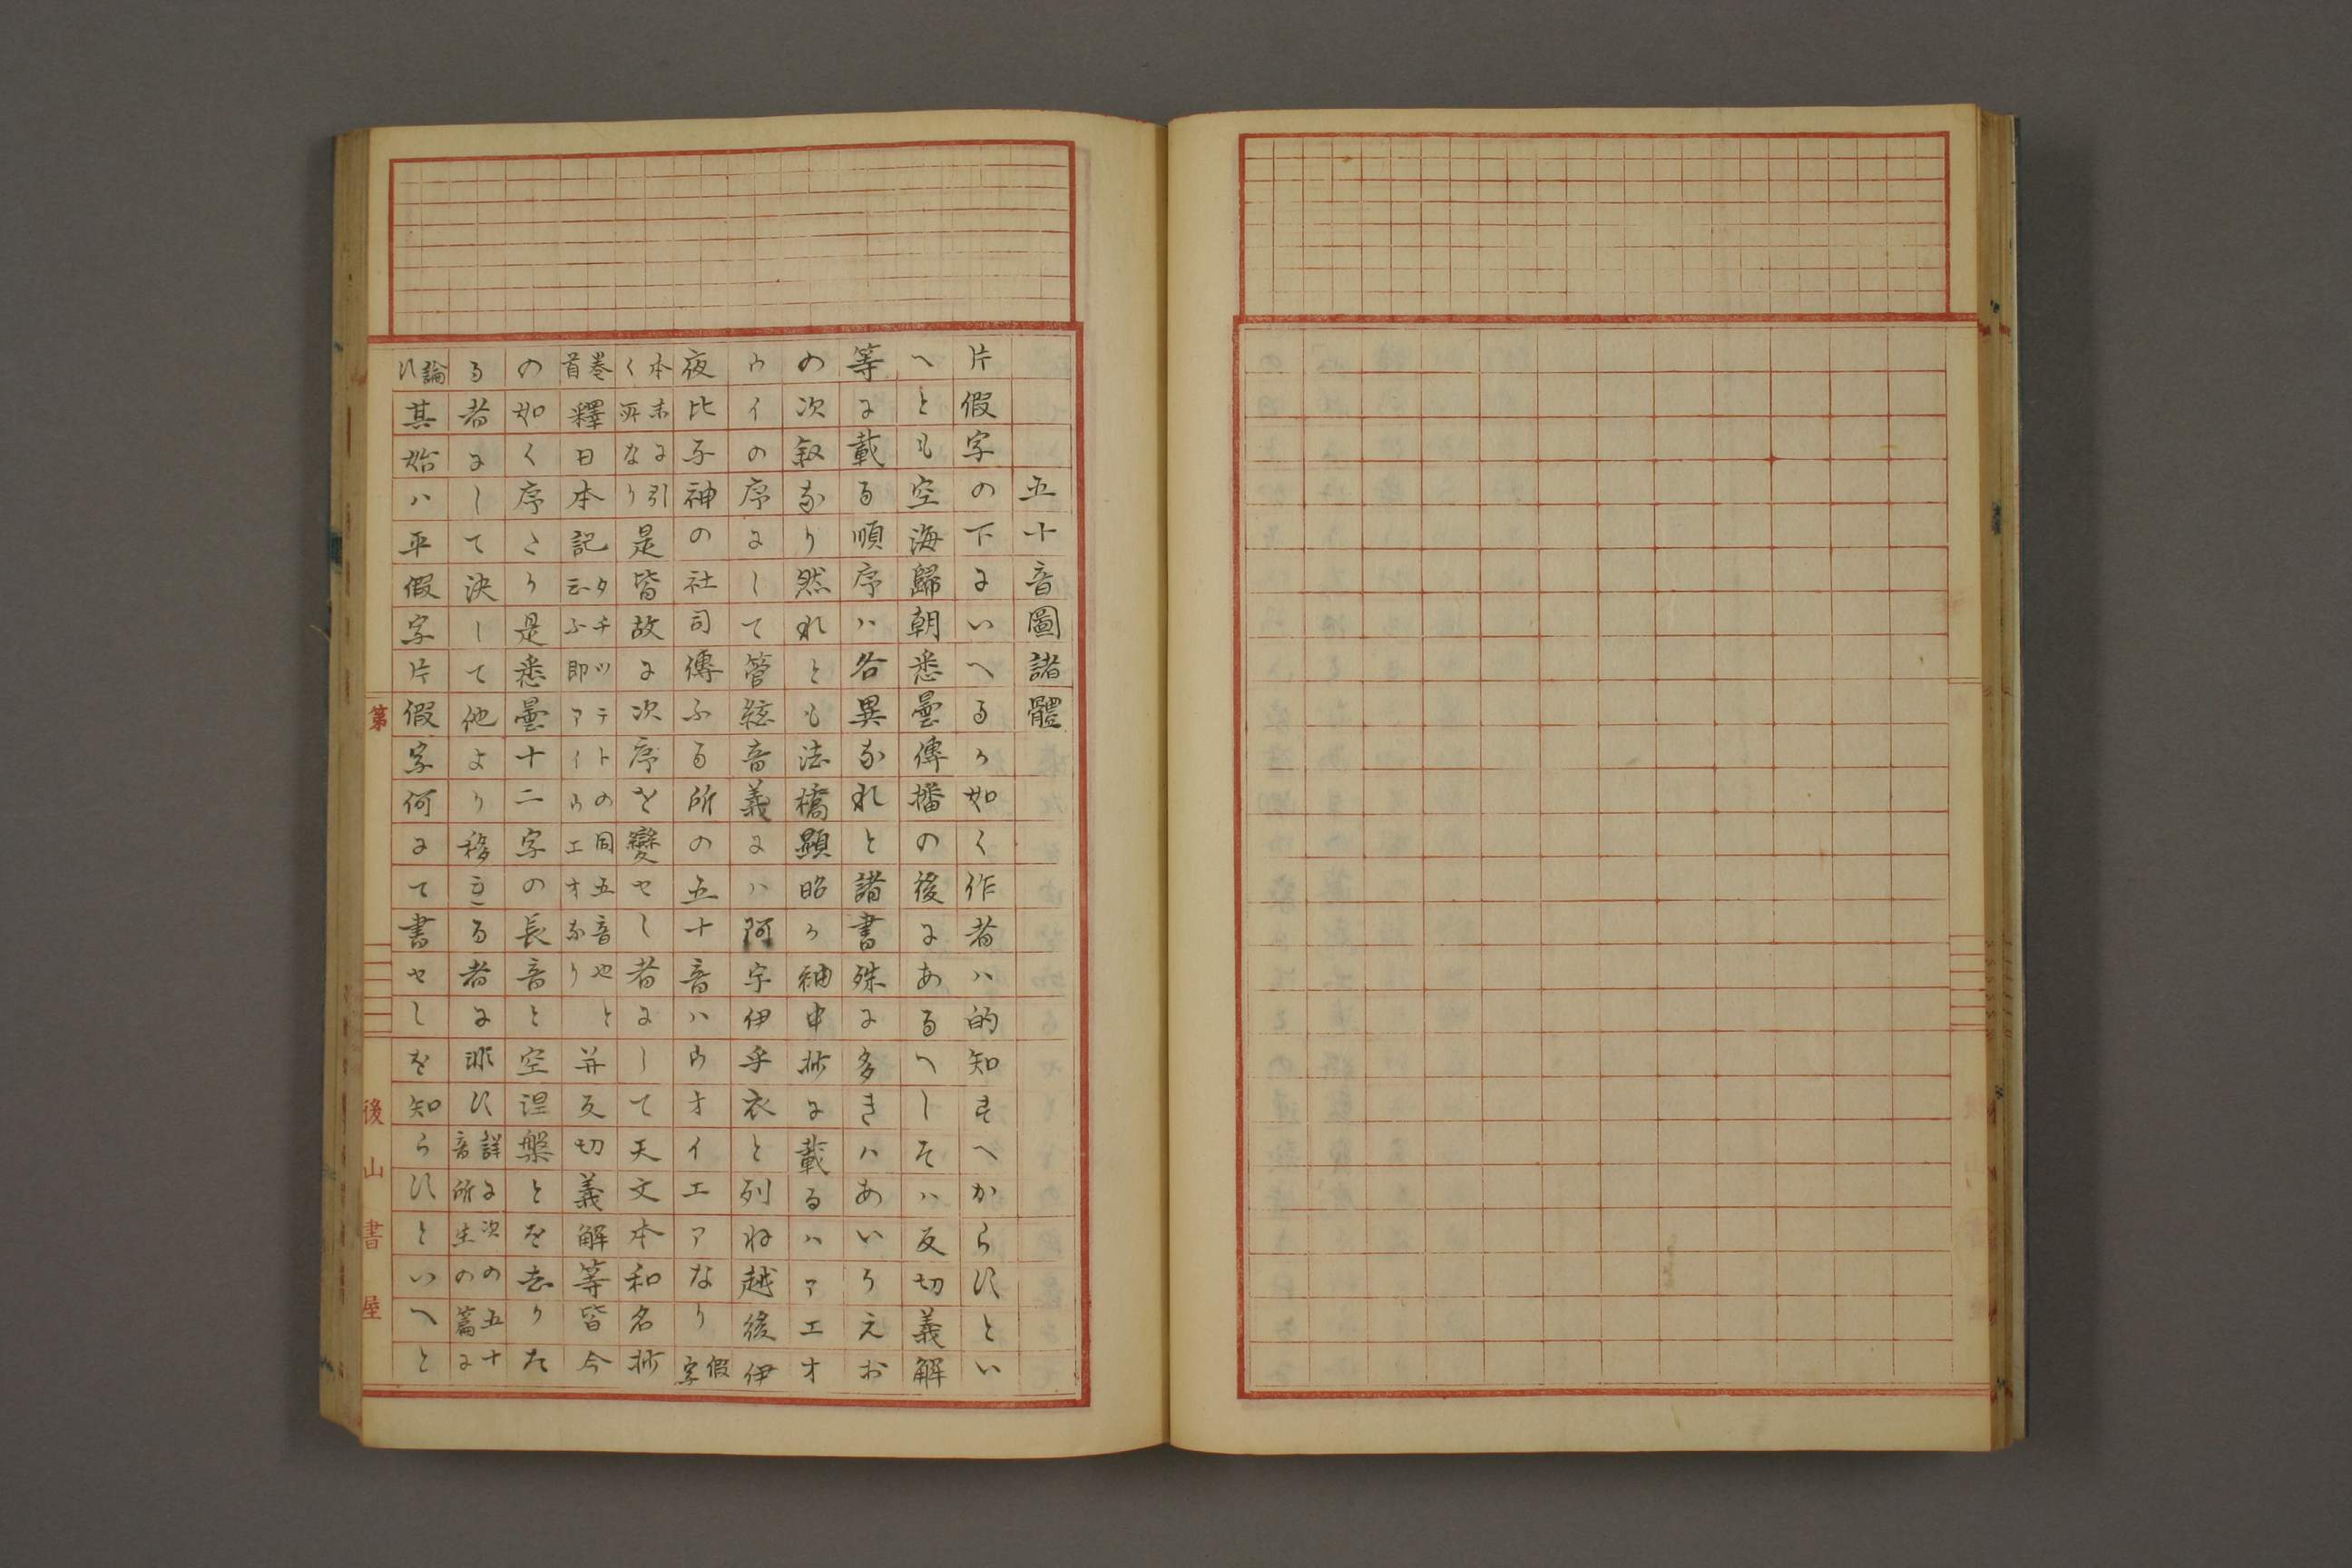 五十音圖諸體
片假字の下にいへるか如く作者ハ的知すへからすとい
へとも空海歸朝悉曇傳播の後にあるへしそハ反切義解
等に載る順序ハ各異なれと諸書殊に多きハあいうえお
の次叙なり然れとも法橋顯昭か袖中抄に載るハアエオ
ウイの序にして管絃音義にハ阿字伊乎衣と列ね越後伊
夜比子神の社司傳ふる所の五十音ハウオイエアなり假字
本末に引く所なり是皆故に次序を變せし者にして天文本和名抄
巻首釋日本記タチツテトの同五音也と云ふ即アイウエオなり并反切義解等皆今
の如く序たり是悉曇十二字の長音と空涅槃とを去りた
る者にして決して他より移きる者に非す詳に次の五十音所生の篇に
論す其始ハ平假字片假字何にて書せしを知らすといへと
第
後山書屋